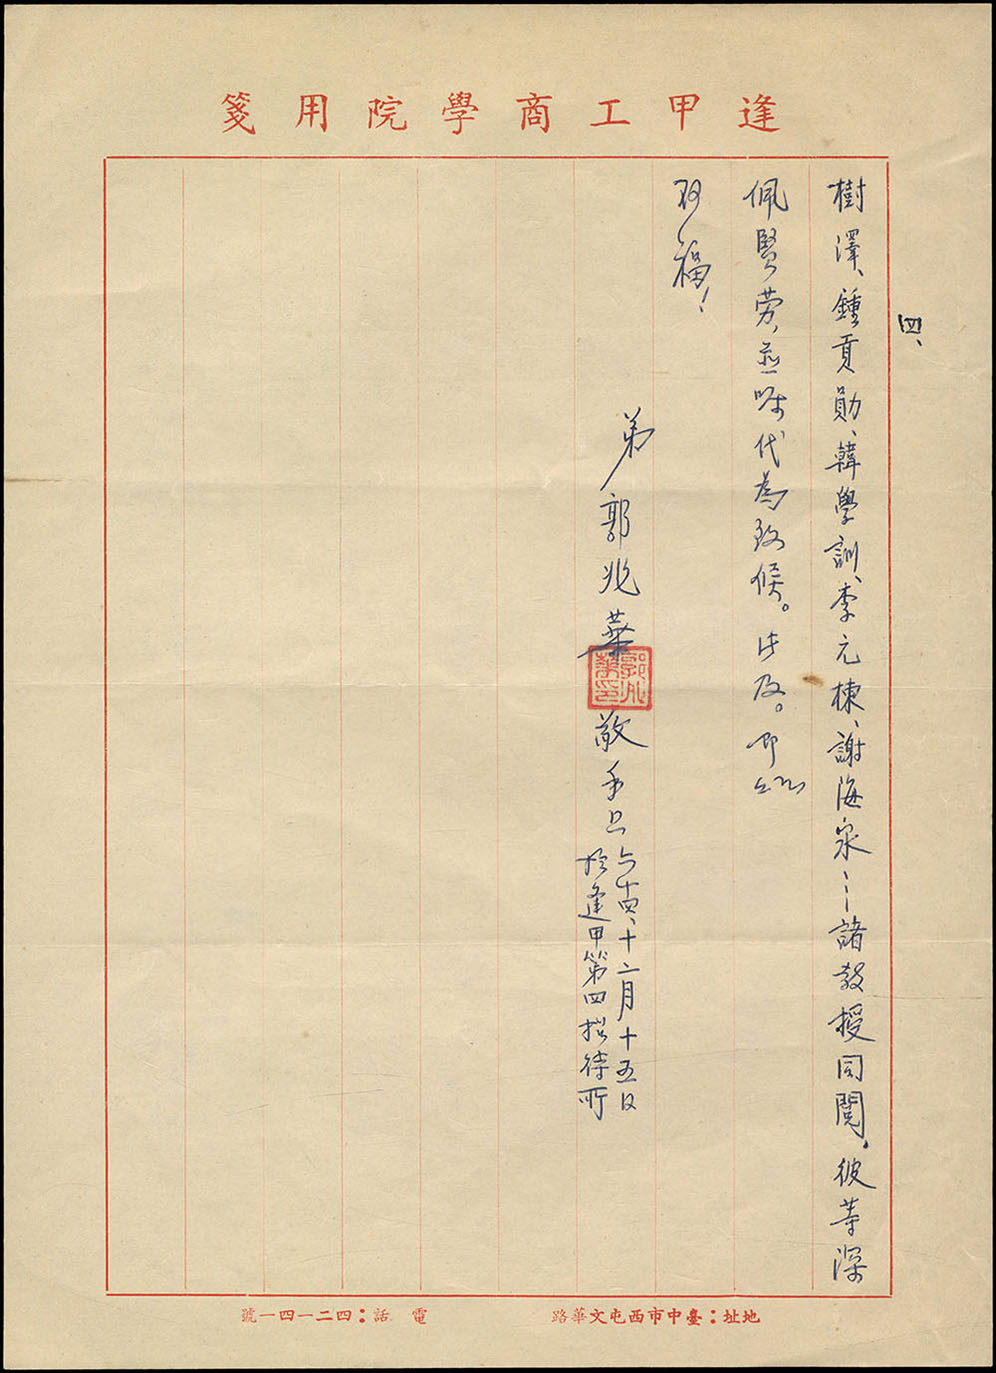 逢甲工商學院用箋
四、
樹澤、鍾貢勛、韓學訓、李元棟、謝海泉……諸教授同閱。彼等深
佩賢勞，並囑代為致候。附及。即頌
羽福！
弟郭兆華敬手上
六十四、十二月十五日
於逢甲第四招待所
郭兆華印
地址：臺中市西屯文華路
電話：四二一四一號